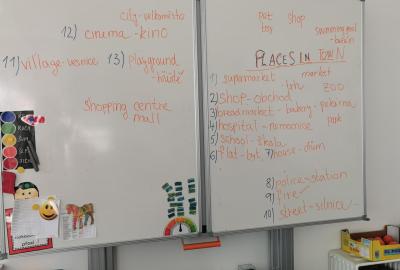 city-velkoměsto
12) cinema - kino
11) village - vesnice 13) playground
- hřiště
shopping centre
mall
pet shop
toy
swimming pool
- bazén
PLACES IN TOWN
1) supermarket market
2) shop - obchod ZOO
3) bread market - bakery - pekárna
4) hospital - nemocnice park
5) school - škola
6) flat - byt, 7) house - dům
8) police - station
9) fire
10) street - silnice